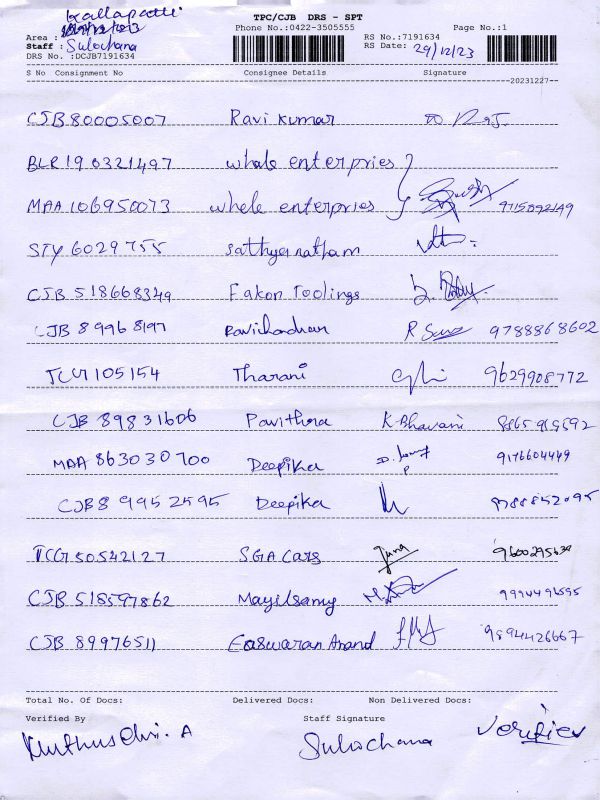 Kallapatti
TPC/CJB DRS - SPT
Area :
Phone No.:0422-3505555
Page No.:1
Staff : Sulochana
RS No.:7191634
DRS No. :DCJB7191634
RS Date: 29/12/23
S No Consignment No Consignee Details Signature
20231227
CJB 80005007 Ravi Kumar
BLR 190321497 whole enterpries
MAA 106950073 whole enterpries 9715892149
STY 6029755 Sathyanatham
CJB 518668349 Fakon Toolings
CJB 89968197 Ravichadran 9788868602
TCG 105154 Tharani 9629908772
CJB 89831606 Pavithra K Bhavani
MAA 863030700 Deepika 9176604449
CJB8 9952595 Deepika 9788852095
TCG 50542127 SGA Cars 9600295634
CJB 518597862 Mayilsamy 9994496595
CJB 89976511 Easwaran Anand 9894426667
Total No. Of Docs: Delivered Docs: Non Delivered Docs:
Verified By Staff Signature
Sulochana Verifiev